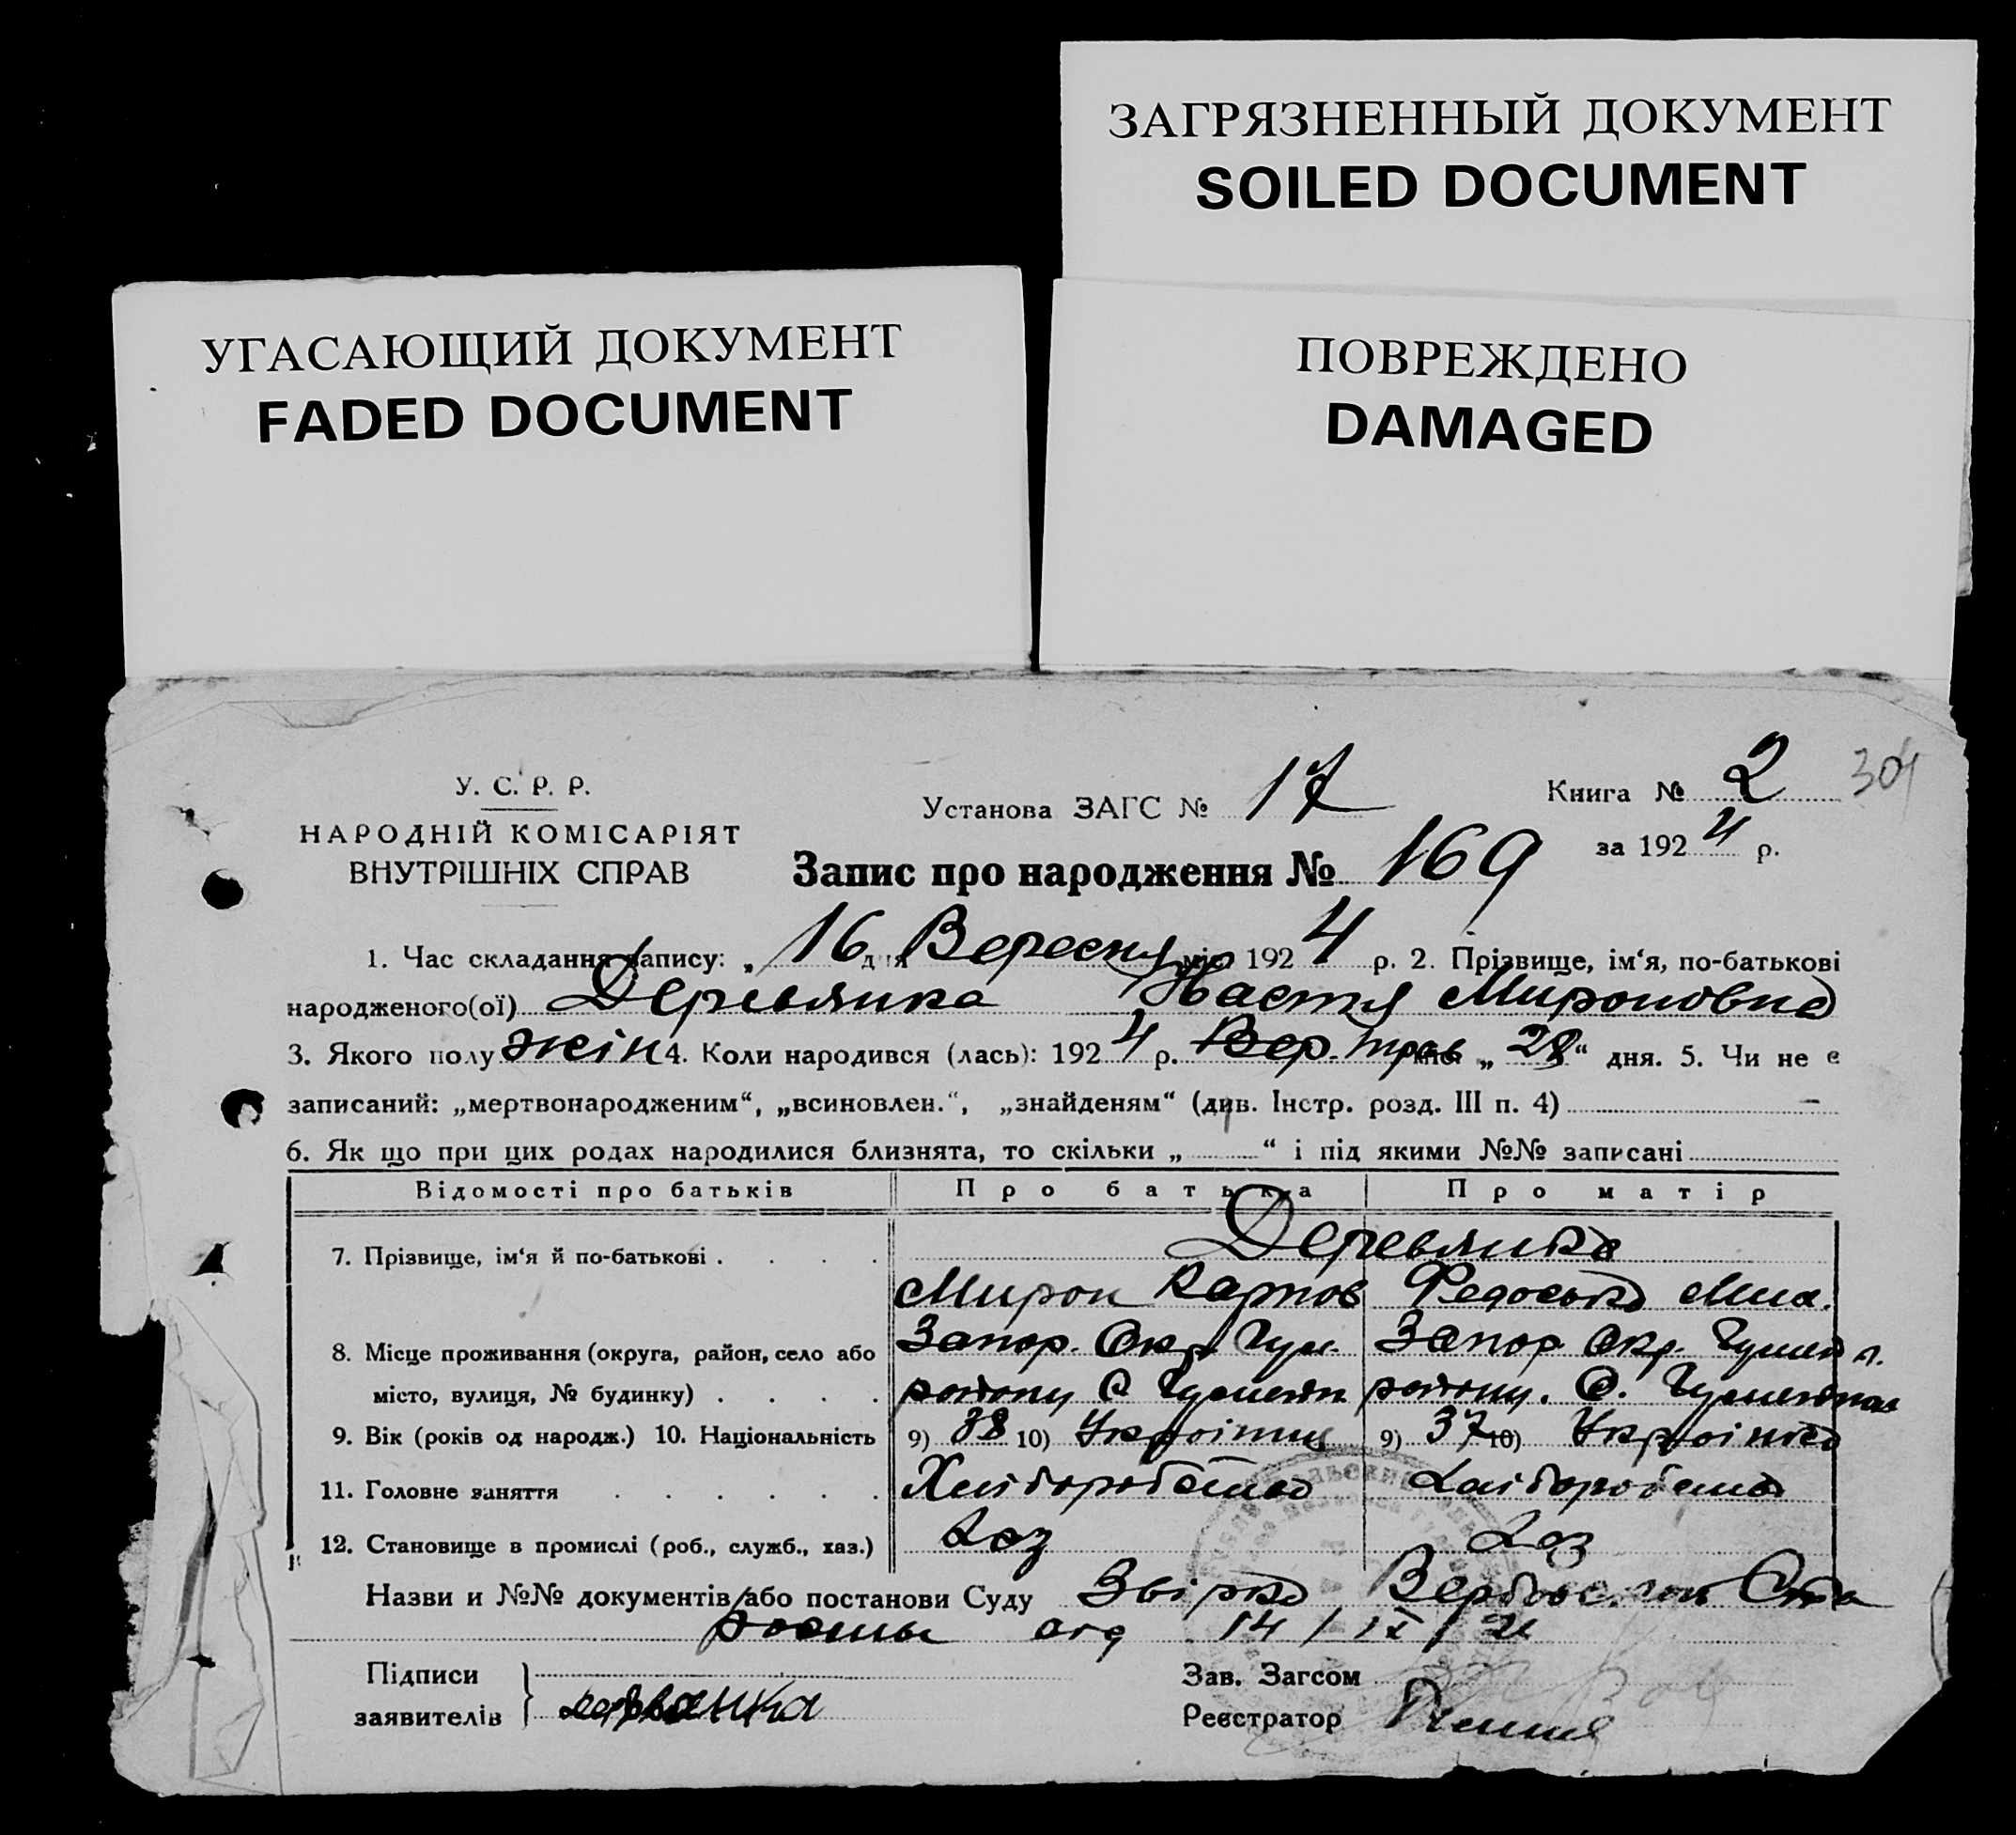 ЗАГРЯЗНЕННЫЙ ДОКУМЕНТ
SOILED DOCUMENT
УГАСАЮЩИЙ ДОКУМЕНТ
FADED DOCUMENT
ПОВРЕЖДЕНО
DAMAGED
У. С. Р. Р.
НАРОДНІЙ КОМІСАРІЯТ
ВНУТРІШНІХ СПРАВ
Установа ЗАГС № 17
Книга № 2 304
за 1924 р.
Запис про народження № 169
1. Час складання запису: „16 дня Вересня міс. 1924 р. 2. Прізвище, ім‘я, по-батькові
народженого(ої) Деревянка Настя Мироновна
3. Якого полу жін 4. Коли народився (лась): 1924 р. Вер. „28“ дня. 5. Чи не є
записаний: „мертвонародженим“, „всиновлен.“, „знайденям“ (див. Інстр. розд. III п. 4) –
6. Як що при цих родах народилися близнята, то скільки „ “ і під якими №№ записані
Відомості про батьків Про батька Про матір
7. Прізвище, ім‘я й по-батькові . . . . Деревянко
Мирон Карпов Федоська Мих.
8. Місце проживання (округа, район, село або Запор. Окр. Запор. Окр.
місто, вулиця, № будинку) . . . . району С району. С.
9. Вік (років од народж.) 10. Національність 9) 38 10) Українец 9) 37 10) Українка
11. Головне заняття . . . . . . Хліборобство Хліборобство
12. Становище в промислі (роб., служб., хаз.) Хаз Хаз
Назви и №№ документів або постанови Суду
од 14/IX/24
Підписи
заявителів
Зав. Загсом
Реєстратор